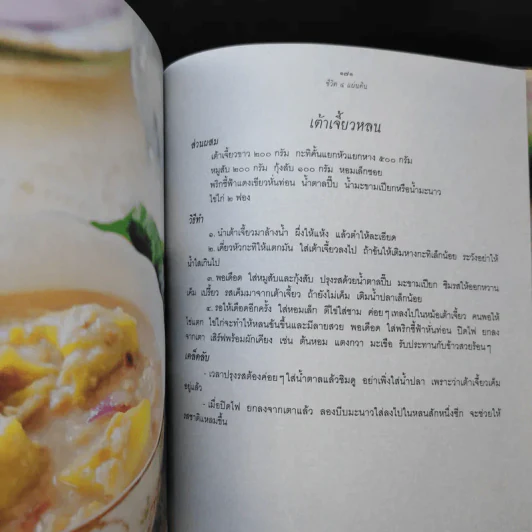 ๑๗๑
ชีวิต ๔ แผ่นดิน
เต้าเจี้ยวหลน
ส่วนผสม
เต้าเจี้ยวขาว ๒๐๐ กรัม กะทิคั้นแยกหัวแยกหาง ๕๐๐ กรัม
หมูสับ ๒๐๐ กรัม กุ้งสับ ๑๐๐ กรัม หอมเล็กซอย
พริกชี้ฟ้าแดงเขียวหั่นท่อน น้ำตาลปี๊บ น้ำมะขามเปียกหรือน้ำมะนาว
ไข่ไก่ ๒ ฟอง
วิธีทำ
๑. นำเต้าเจี้ยวมาล้างน้ำ ผึ่งให้แห้ง แล้วตำให้ละเอียด
๒. เคี่ยวหัวกะทิให้แตกมัน ใส่เต้าเจี้ยวลงไป ถ้าข้นให้เติมหางกะทิเล็กน้อย ระวังอย่าให้
น้ำใสเกินไป
๓. พอเดือด ใส่หมูสับและกุ้งสับ ปรุงรสด้วยน้ำตาลปี๊บ มะขามเปียก ชิมรสให้ออกหวาน
เค็ม เปรี้ยว รสเค็มมาจากเต้าเจี้ยว ถ้ายังไม่เค็ม เติมน้ำปลาเล็กน้อย
๔. รอให้เดือดอีกครั้ง ใส่หอมเล็ก ตีไข่ใส่ชาม ค่อยๆเทลงไปในหม้อเต้าเจี้ยว คนพอให้
ไข่แตก ไข่ไก่จะทำให้หลนข้นขึ้นและมีลายสวย พอเดือด ใส่พริกชี้ฟ้าหั่นท่อน ปิดไฟ ยกลง
จากเตา เสิร์ฟพร้อมผักเคียง เช่น ต้นหอม แตงกวา มะเขือ รับประทานกับข้าวสวยร้อนๆ
เคล็ดลับ
- เวลาปรุงรสต้องค่อยๆใส่น้ำตาลแล้วชิมดู อย่าเพิ่งใส่น้ำปลา เพราะว่าเต้าเจี้ยวเค็ม
อยู่แล้ว
- เมื่อปิดไฟ ยกลงจากเตาแล้ว ลองบีบมะนาวใส่ลงไปในหลนสักหนึ่งซีก จะช่วยให้
รสชาติแหลมขึ้น